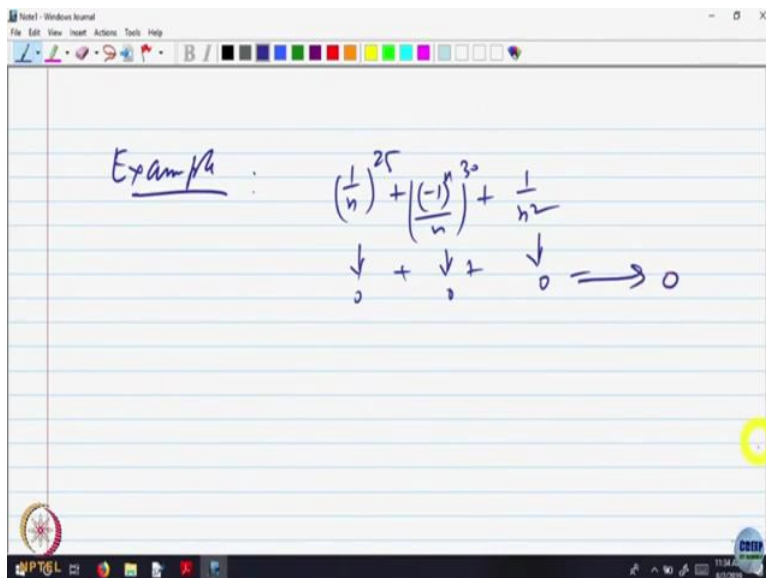 Note1 - Windows Journal
File Edit View Insert Actions Tools Help
B I
Example : (1/n)^25 + ((-1)^n/n)^30 + 1/n^2
↓ + ↓ + ↓
0 0 0 ⟹ 0
NPTEL
CDEEP